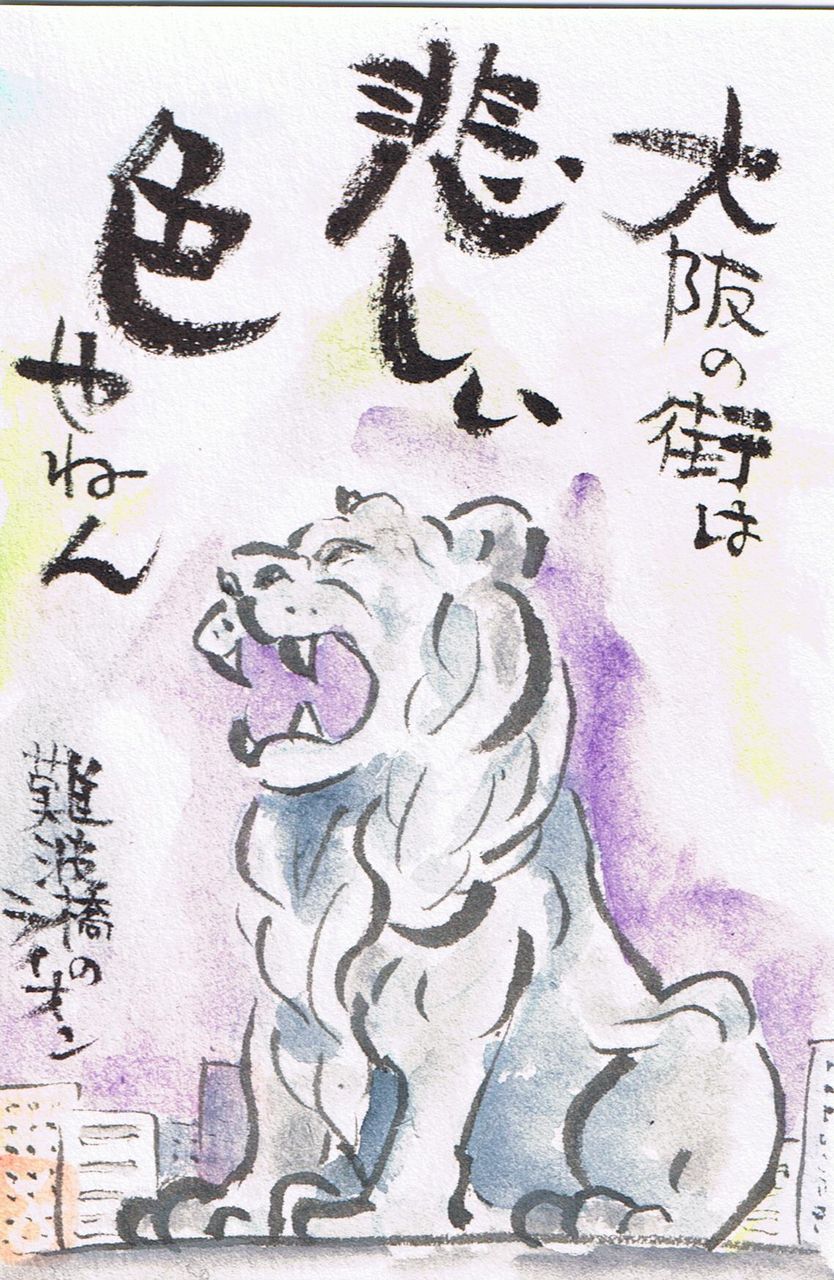 大阪の街は
悲しい
色やねん
難波橋の
ライオン